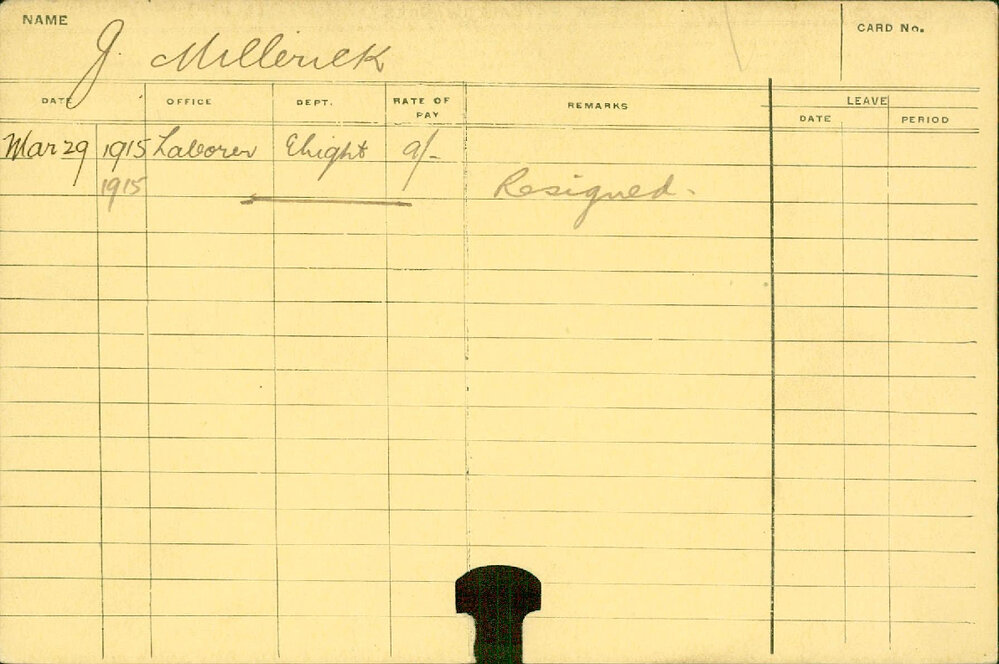 NAME J. Millerick
CARD No.
DATE OFFICE DEPT. RATE OF PAY REMARKS LEAVE
DATE PERIOD
Mar 29 1915 Laborer Elight 9/-
1915 Resigned.